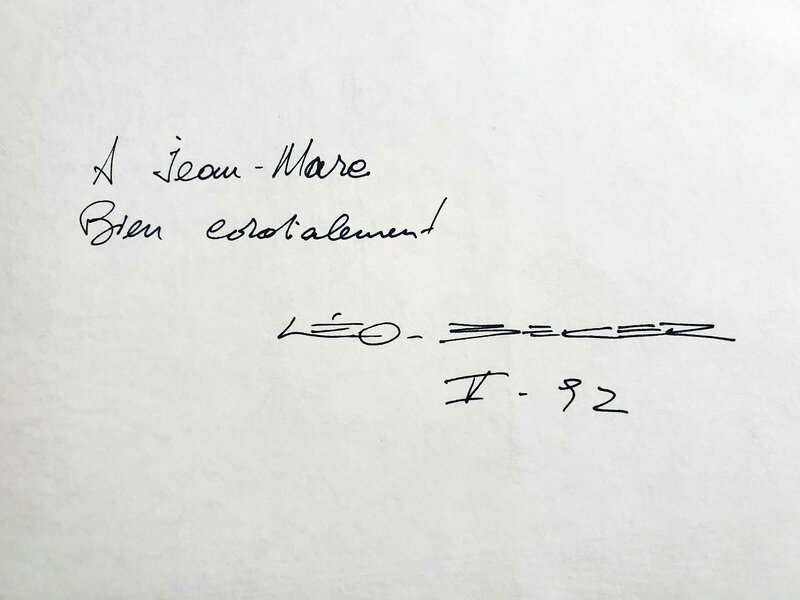 A Jean-Marc
Bien cordialement
LÉO - BECKER
V - 92